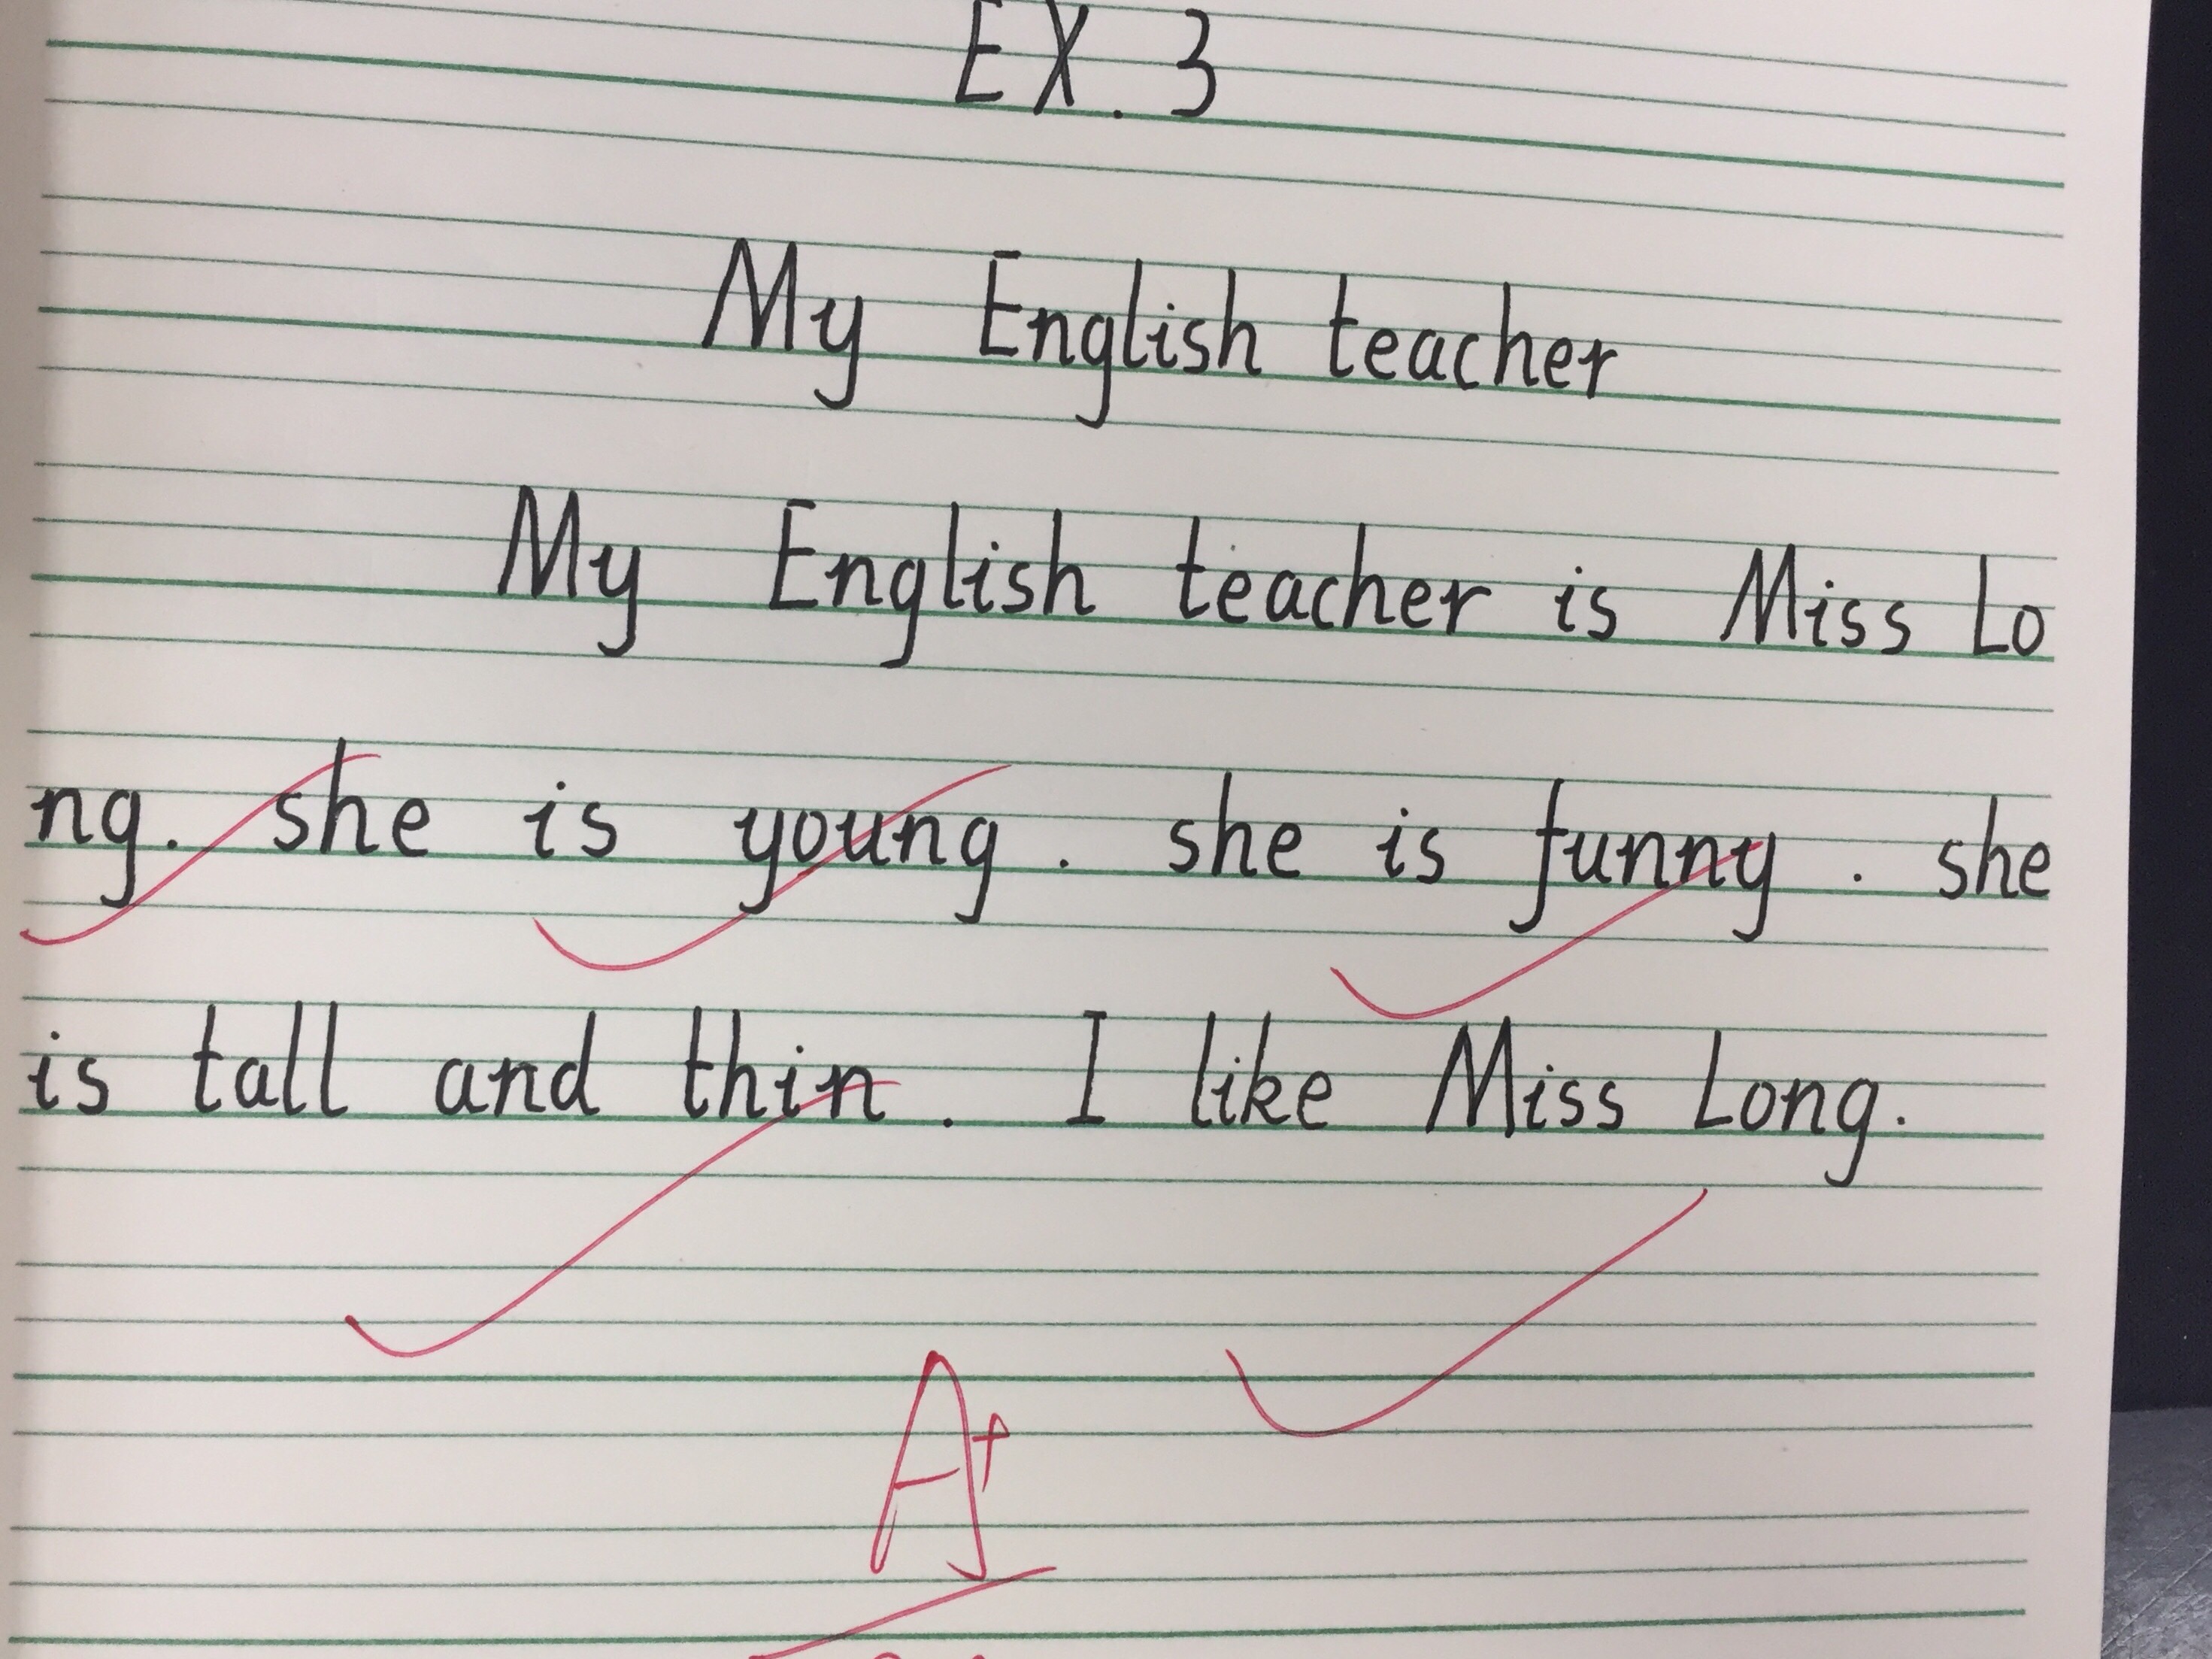 EX. 3
My English teacher
My English teacher is Miss Lo
ng. she is young. she is funny. she
is tall and thin. I like Miss Long.
A+